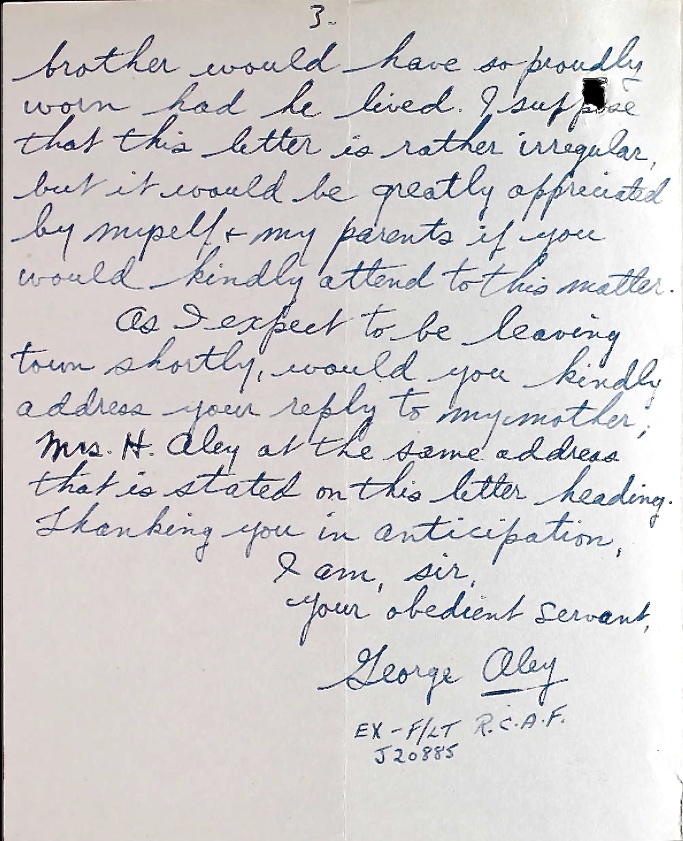 3-
brother would have so proudly
worn had he lived. I suppose
that this letter is rather irregular,
but it would be greatly appreciated
by myself & my parents if you
would kindly attend to this matter.
As I expect to be leaving
town shortly, would you kindly
address your reply to my mother;
Mrs. H. Aley at the same address
that is stated on this letter heading.
Thanking you in anticipation,
I am, sir,
your obedient servant,
George Aley
EX-F/LT R.C.A.F.
J20885